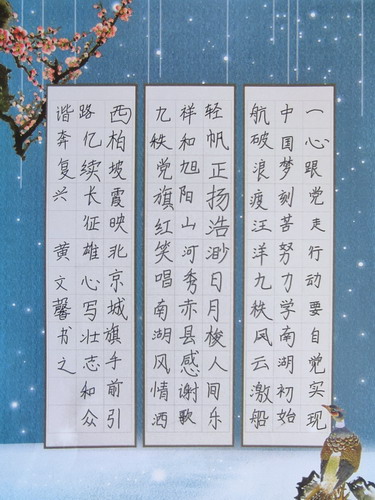 一心跟党走行动要自觉实现
中国梦刻苦努力学南湖初始
航破浪渡汪洋九秩风云激船
轻帆正扬浩渺日月梭人间乐
祥和旭阳山河秀赤县感谢歌
九秩党旗红笑唱南湖风情洒
西柏坡霞映北京城旗手前引
路亿续长征雄心写壮志和众
谐奔复兴 黄文馨书之